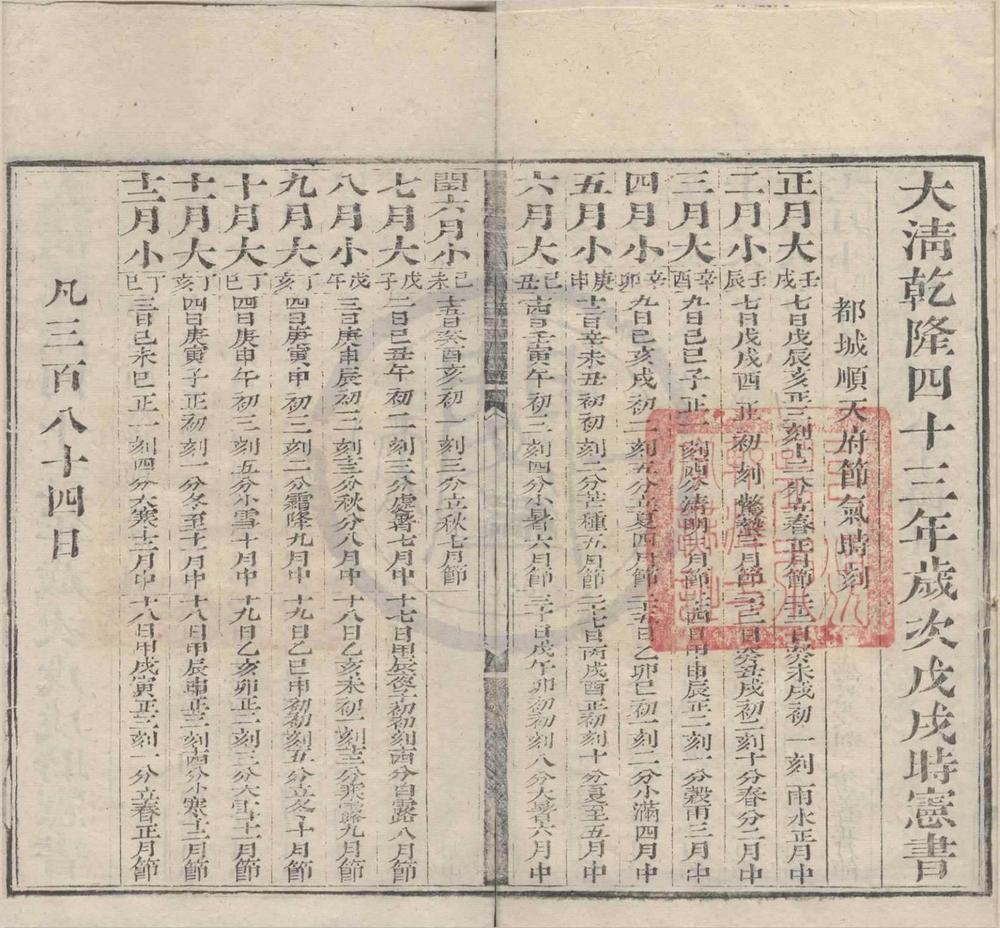 大清乾隆四十三年歲次戊戌時憲書
都城順天府節氣時刻
正月大壬戌七日戊辰亥正三刻十二分立春正月節二十二日癸未戌初一刻雨水正月中
二月小壬辰七日戊戌酉正初刻驚蟄二月節二十二日癸丑戌初二刻十分春分二月中
三月大辛酉九日己巳子正一刻十四分清明三月節二十四日甲申辰正二刻一分穀雨三月中
四月小辛卯九日己亥戌初二刻五分立夏四月節二十五日乙卯巳初一刻二分小滿四月中
五月小庚申十二日辛未丑初初刻二分芒種五月節二十七日丙戌酉正初刻十分夏至五月中
六月大己丑十四日壬寅午初二刻四分小暑六月節三十日戊午卯初初刻八分大暑六月中
閏六月小己未十五日癸酉亥初一刻三分立秋七月節
七月大戊子二日己丑午初二刻三分處暑七月中十七日甲辰夜子初初刻十四分白露八月節
八月小戊午三日庚申辰初二刻十三分秋分八月中十八日乙亥未初一刻十三分寒露九月節
九月大丁亥四日庚寅申初二刻二分霜降九月中十九日乙巳申初初刻五分立冬十月節
十月大丁巳四日庚申午初三刻五分小雪十月中十九日乙亥卯正二刻三分大雪十一月節
十一月大丁亥四日庚寅子正初刻一分冬至十一月中十八日甲辰申正三刻十四分小寒十二月節
十二月小丁巳三日己未巳正一刻四分大寒十二月中十八日甲戌寅正三刻一分立春正月節
凡三百八十四日